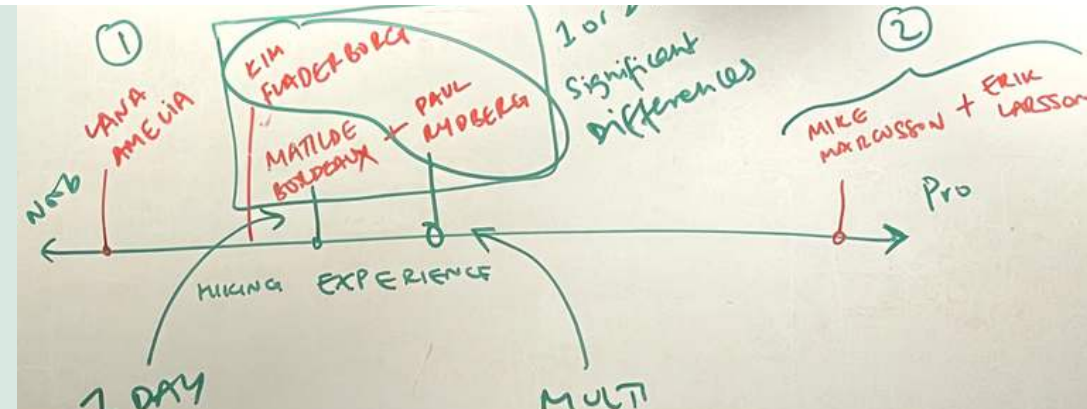 ①
②
KIM
FLADERBORG
LANA
AMELIA
MATILDE
BORDEAUX
+ PAUL
RYDBERG
1 or
Significant
Differences
MIKE
MARCUSSON
+ ERIK
LARSSON
Noob
Pro
HIKING EXPERIENCE
1 DAY
MULTI